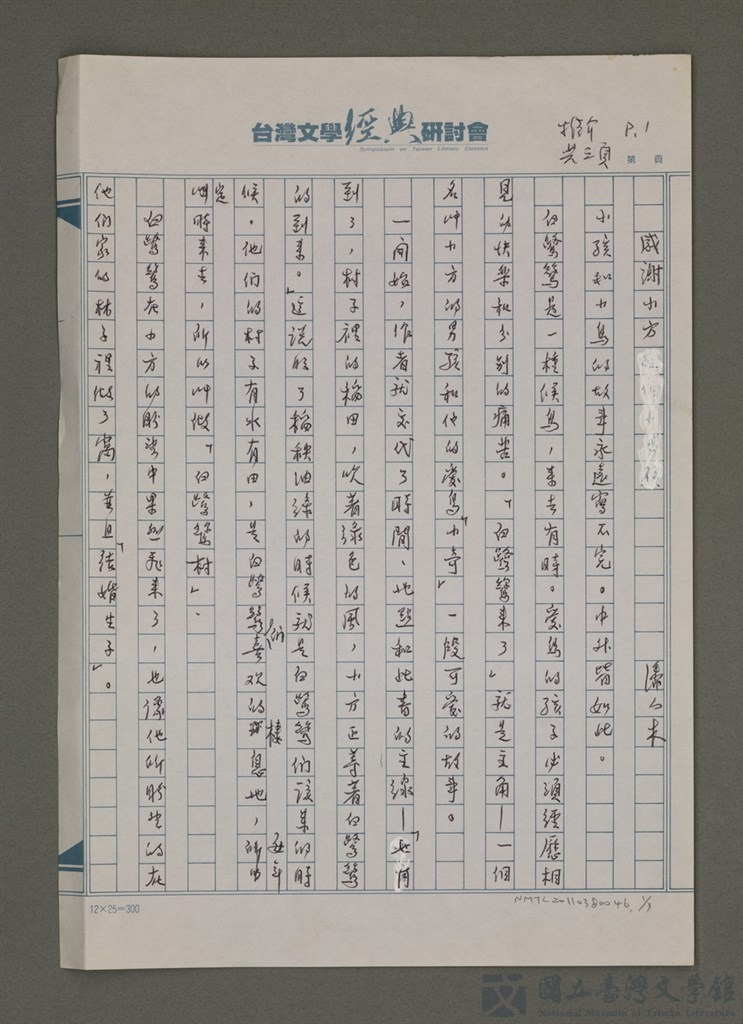 台灣文學經典研討會
Symposium on Taiwan Literary Classics
推介 P.1
共三頁
第 頁
感謝小方
潘人木
小孩和小鳥的故事永遠寫不完。中外皆如此。
白鷺鷥是一種候鳥,來去有時。愛鳥的孩子必須經歷相
見的快樂和分別的痛苦。「白鷺鷥來了」就是主角—一個
名叫小方的男孩和他的愛鳥「小奇」一段可愛的故事。
一開始,作者就交代了時間、地點和此書的主線—「
到了,村子裡的稻田,吹著綠色的風,小方正等著白鷺鷥
的到來。」這說明了稻秧油綠的時候就是白鷺鷥們該來的時
候。他們的村子有水有田,是白鷺鷥們喜歡的棲息地,所以每年
定時來去,所以叫做「白鷺鷥村」。
白鷺鷥在小方的盼望中果然飛來了,也像他所盼望的在
他們家的林子裡做了窩,並且「結婚生子」。
12×25=300
NMTL20110380046, 1/3
國立臺灣文學館
National Museum of Taiwan Literature